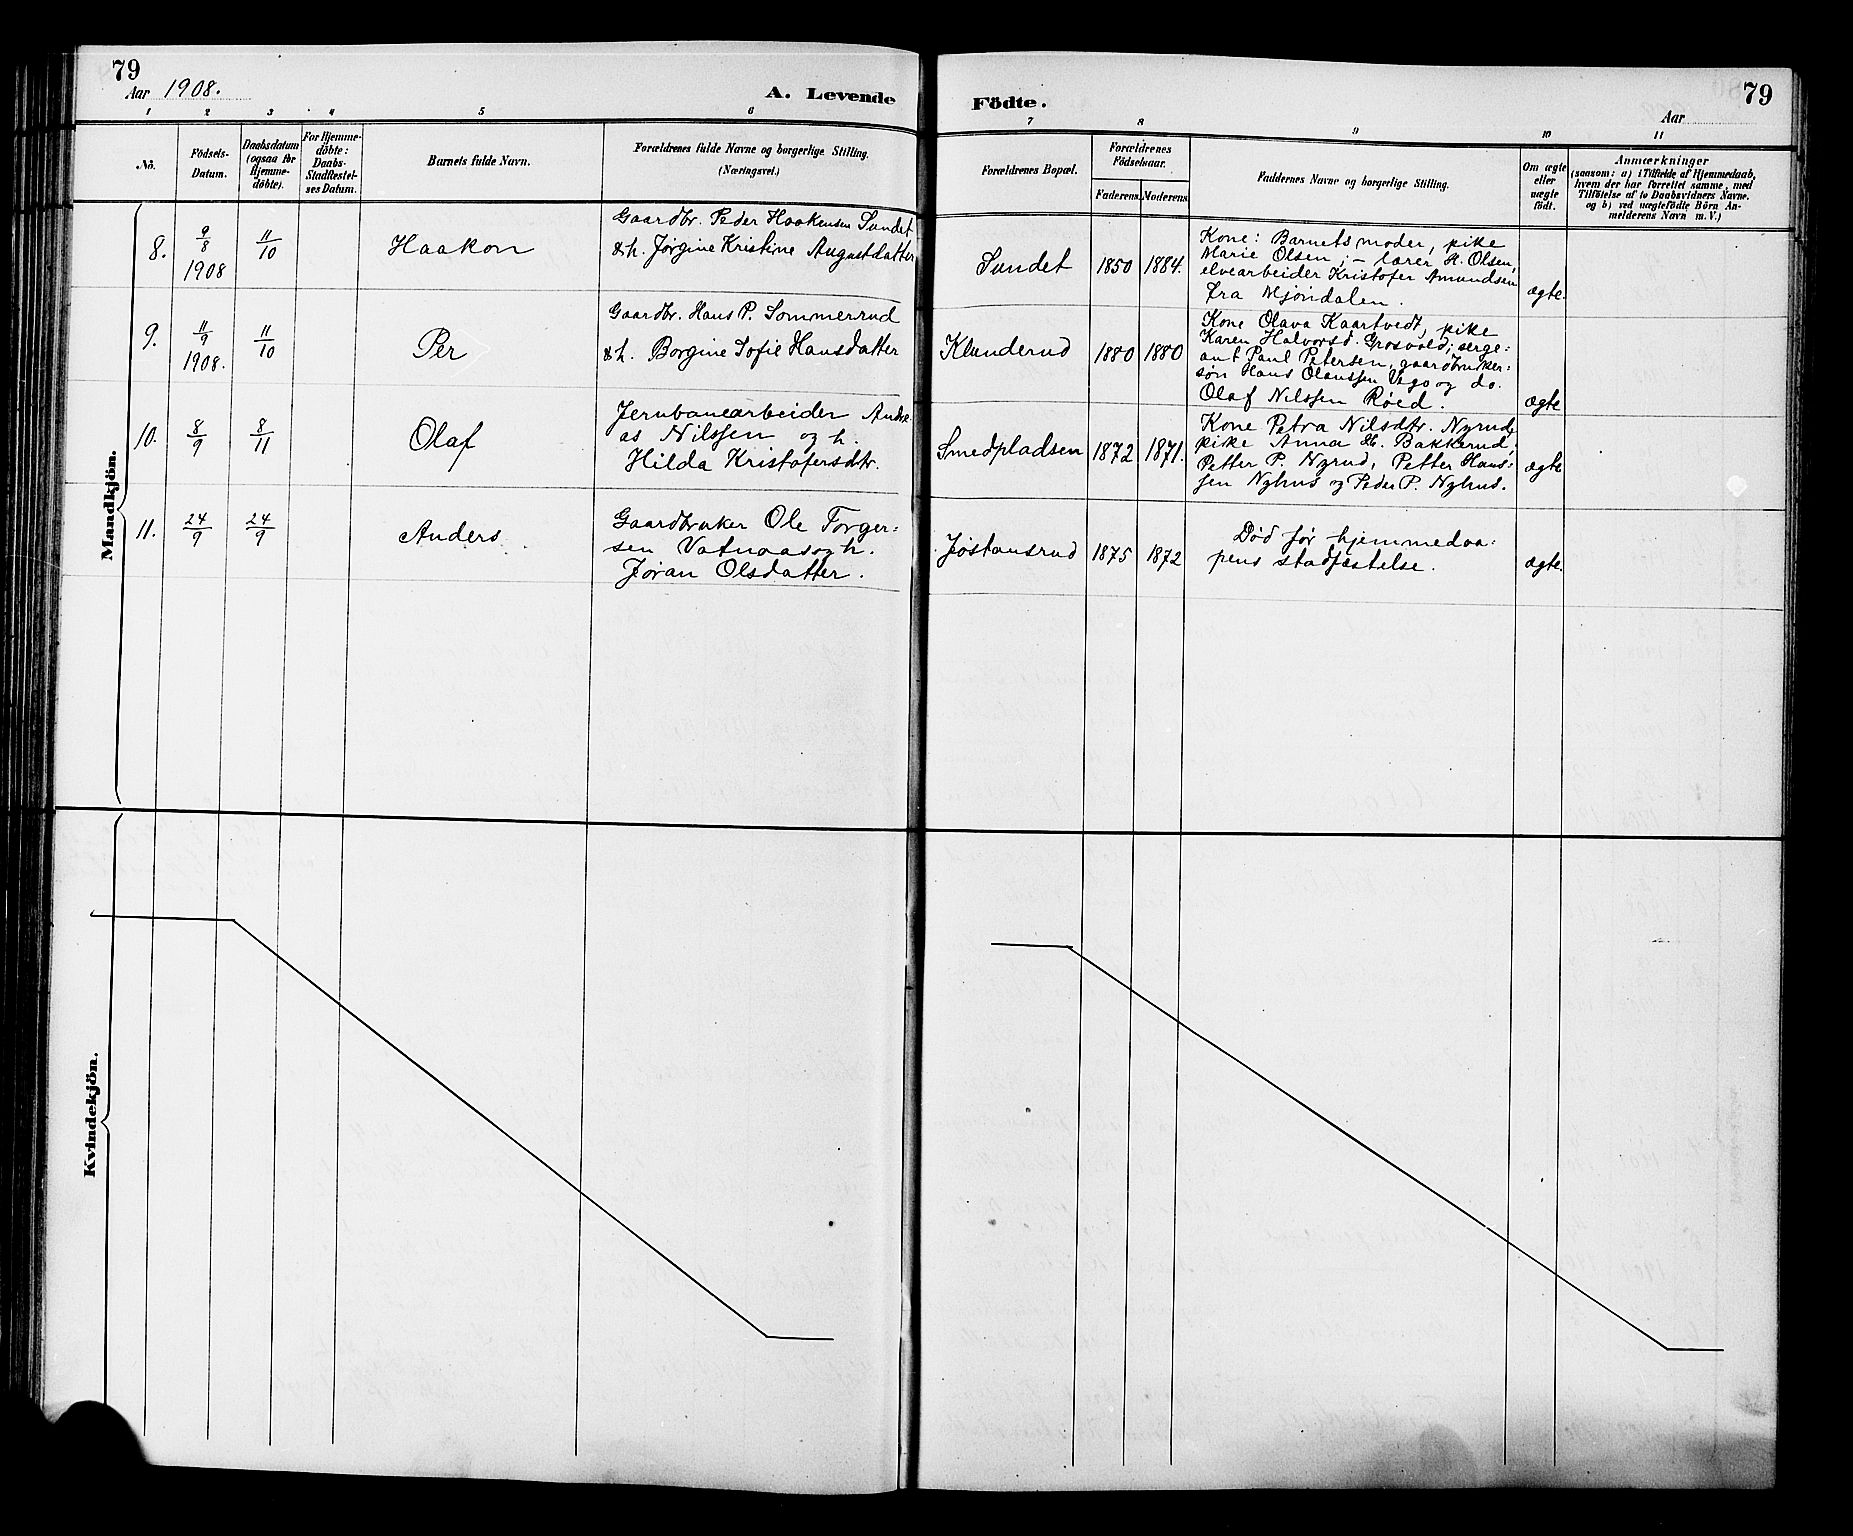 79
Aar 1908.
A. Levende
Födte.
79
Aar
1
2
3
4
5
6
7
8
9
10
11
Nô.
Födsels-
Datum.
Daabsdatum
(ogsaa for
Hjemme-
döbte).
For Hjemme-
döbte:
Daabs-
Stadfestel-
ses Datum.
Barnets fulde Navn.
Forældrenes fulde Navne og borgerlige Stilling.
(Næringsvei.)
Forældrenes Bopæl.
Forældrenes
Födselsaar.
Faderens.
Moderens.
Faddernes Navne og borgerlige Stilling.
Om ægte
eller
uægte
födt.
Anmærkninger
(saasom: a) i Tilfælde af Hjemmedaab,
hvem der har forrettet samme, med
Tilföielse af to Daabsvidners Navne.
og b) ved uægtefödte Börn An-
melderens Navn m.V.)
Mandkjön.
8.
9/8
1908
11/10
Haakon
Gaardbr. Peder Haakensen Sundet
& h. Jørgine Kristine Augustdatter
Sundet
1850
1884.
Kone: Barnets moder, pike
Marie Olsen; – lærer H. Olsen,
elvearbeider Kristofer Amundsen
fra Mjøndalen.
ægte.
9.
11/9
1908.
11/10
Per
Gaardbr. Hans P. Sommerrud
& h. Borgine Sofie Hansdatter
Klunderud
1880
1880
Kone Olava Kaartvedt, pike
Karen Halvorsd. Grosvold; serge=
ant Paul Petersen, gaardbruker=
søn Hans Olaussen Vego og do.
Olaf Nilssen Røed.
ægte
10.
8/9
8/11
Olaf
Jernbanearbeider Andre
as Nilssen og h.
Hilda Kristofersdtr.
Smedpladsen
1872
1871.
Kone Petra Nilsdtr. Nyrud,
pike Anna H. Bakkerud;
Petter P. Nyrud, Petter Hans=
sen Nyhus og Peder P. Nyhus.
ægte
11.
24/9
24/9
Anders
Gaardbruker Ole Torger=
sen Vatnaas og h.
Jøran Olsdatter.
Jøstansrud
1875
1872
Død før hjemmedaa=
pens stadfæstelse.
ægte.
Kvindekjön.